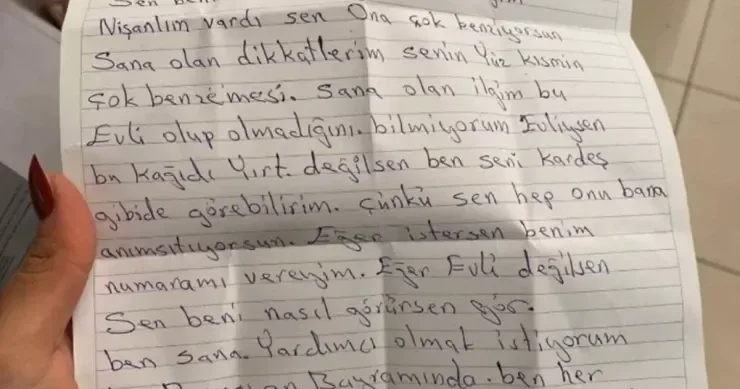 Sen beni
Nişanlım vardı sen Ona çok benziyorsun
Sana olan dikkatlerim senin Yüz kısmin
çok benzemesi. Sana olan ilgim bu
Evli olup olmadığını. bilmiyorum Evliysen
bu kağıdı Yırt. değilsen ben seni kardeş
gibide görebilirim. çünkü sen hep onu bana
anımsıtıyorsun. Eğer istersen benim
numaramı vereyim. Eğer Evli değilsen
Sen beni nasıl görürsen gör.
ben sana. Yardımcı olmak istiyorum
Bayramında. ben her